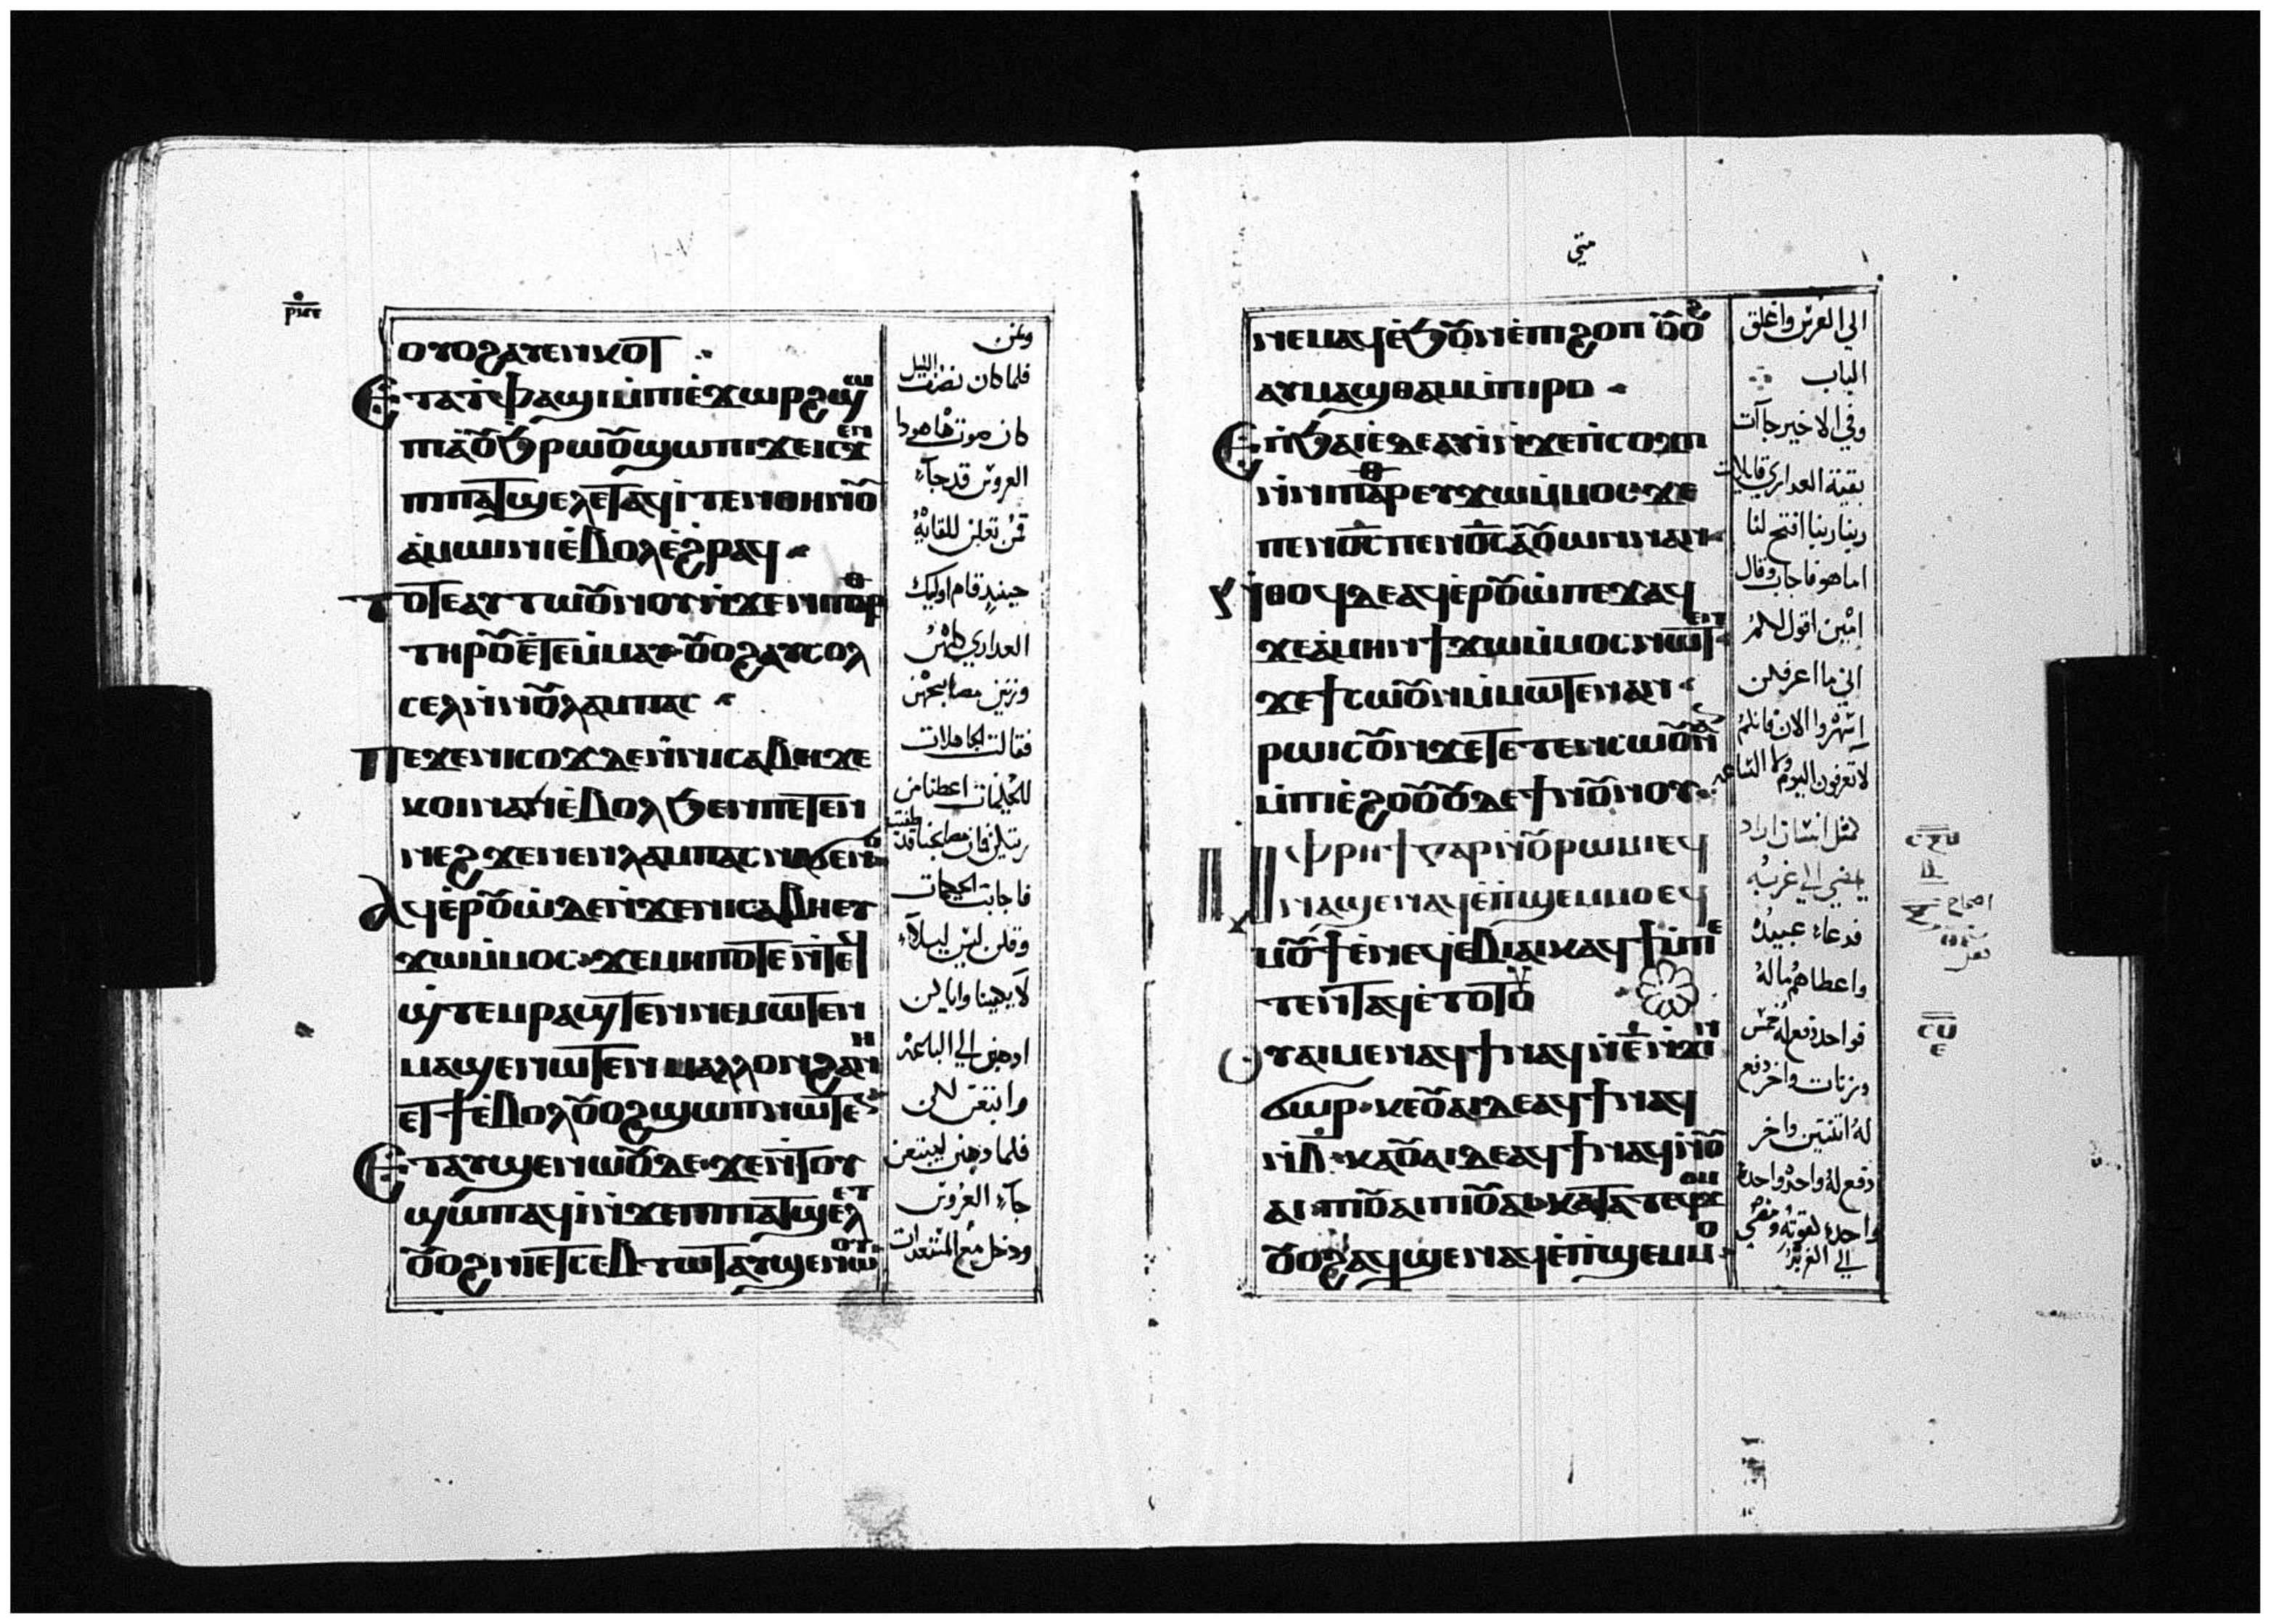 ⲣⲙⲉ
ⲟⲩⲟϩⲁⲩⲉⲛⲕⲟⲧ
Ⲉⲧⲁⲧⲫⲁϣⲓⲙⲡⲓⲉϫⲱⲣϩϣⲱ
ⲡⲓⲁⲟ⩩ϧⲣⲱⲟⲩϣⲱⲡⲓϫⲉⲓⲥ
ⲡⲓⲡⲁⲧϣⲉⲗⲉⲧⲁϥⲓⲧⲉⲛⲑⲏⲛⲟⲩ
ⲁⲙⲱⲓⲛⲓⲉⲃⲟⲗⲉϩⲣⲁϥ
ⲧⲟⲧⲉⲁⲩⲧⲱⲟⲩⲛⲟⲩⲛϫⲉⲛⲓⲡⲁⲣⲑ
ⲧⲏⲣⲟⲩⲉⲧⲉⲙⲙⲁⲩ ⲟⲩⲟϩⲁⲩⲥⲟⲗ
ⲥⲉⲗⲛⲛⲟⲩⲗⲁⲙⲡⲁⲥ
ⲡⲉϫⲉⲛⲓⲥⲟϫⲇⲉⲛⲛⲓⲥⲁⲃⲏϫⲉ
ⲙⲟⲓⲛⲁⲛⲉⲃⲟⲗϧⲉⲛⲡⲉⲧⲉⲛ
ⲛⲉϩϫⲉⲛⲉⲛⲗⲁⲙⲡⲁⲥⲛⲁϭⲉⲛⲟ
ⲁϥⲉⲣⲟⲩⲱⲇⲉⲛϫⲉⲛⲓⲥⲁⲃⲏⲉⲩ
ϫⲱⲙⲙⲟⲥ ϫⲉⲙⲏⲡⲟⲧⲉⲛⲧⲉϥ
ϣⲧⲉⲙⲣⲁϣⲧⲉⲛⲛⲉⲙⲱⲧⲉⲛ
ⲙⲁϣⲉⲛⲱⲧⲉⲛ ⲙⲁⲗⲗⲟⲛϩⲁⲛⲏ
ⲉⲧϯⲉⲃⲟⲗⲟⲩⲟϩϣⲱⲡⲛⲱⲧⲉⲛ
Ⲉⲧⲁⲩϣⲉⲛⲱⲟⲩⲇⲉ ϫⲉⲛⲧⲟⲩ
ϣⲱⲡⲁϥⲓⲛϫⲉⲡⲓⲡⲁⲧϣⲉⲗⲉⲧ
ⲟⲩⲟϩⲛⲓⲉⲧⲥⲉⲃⲧⲱⲧⲁⲩϣⲉⲛⲱⲟⲩ
فلما كان نصف الليل
كان صوت ها هوذا
العروس قد جآء
قمن تعلن للقايه
حينيد قام اوليك
العداري كلهن
وزين مصابيحهن
فقالت الجاهلات
للحكيمات اعطنا من
زيتكن فان مصابيحنا قد طفيت
فاجابت الحكيمات
وقلن ليس ليلآء
لا يكفينا واياكن
ادهبن الي الباعه
وابتعن لكن
فلما دهبن ليبتعن
جآء العروس
ودخل مع المستعدات
متي
ⲛⲉⲙⲁϥⲉϧⲟⲩⲛⲉⲡⲓϩⲟⲡ ⲟⲩⲟϩ
ⲁⲩⲙⲁϣⲑⲁⲙⲙⲡⲓⲣⲟ
Ⲉⲡϧⲁⲉⲇⲉⲁⲩⲓⲛϫⲉⲡⲥⲱϫⲡ
ⲛⲛⲓⲡⲁⲣⲑⲉⲩϫⲱⲙⲙⲟⲥ ϫⲉ
ⲡⲉⲛⲟⲥⲡⲉⲛⲟⲥⲁⲟⲩⲱⲛⲛⲁⲛ
ⲛⲑⲟϥⲇⲉⲁϥⲉⲣⲟⲩⲱⲡⲉϫⲁϥ
ϫⲉⲁⲙⲏⲛϯϫⲱⲙⲙⲟⲥⲛⲱⲧⲉⲛ
ϫⲉϯⲥⲱⲟⲩⲛⲙⲙⲱⲧⲉⲛⲁⲛ
ⲣⲱⲓⲥⲟⲩⲛϫⲉⲧⲉⲧⲉⲛⲥⲱⲟⲩⲛⲁⲛ
ⲙⲡⲓⲉϩⲟⲟⲩⲟⲩⲇⲉϯⲟⲩⲛⲟⲩ
ⲙⲫⲣⲏϯⲅⲁⲣⲛⲟⲩⲣⲱⲙⲓⲉϥ
ⲛⲁϣⲉⲛⲁϥⲉⲡϣⲉⲙⲙⲟⲉϥ
ⲙⲟⲩϯⲉⲛⲉϥⲉⲃⲓⲁⲓⲕⲁϥϯⲙⲡⲉ
ⲧⲉⲛⲧⲁϥⲉⲧⲟⲧⲟⲩ
ⲟⲩⲁⲓⲙⲉⲛⲁϥϯⲛⲁϥⲛⲉⲛϫⲓⲛ
ϭⲱⲣ ⲕⲉⲟⲩⲁⲓⲇⲉⲁϥϯⲛⲁϥ
ⲛⲃ ⲕⲁⲟⲩⲁⲓⲇⲉⲁϥϯⲛⲁϥⲛⲟⲩ
ⲁⲓ ⲡⲓⲟⲩⲁⲓⲡⲓⲟⲩⲁⲓ ⲕⲁⲧⲁⲧⲉϥϫⲟⲙ
ⲟⲩⲟϩⲁϥϣⲉⲛⲁϥⲉⲡϣⲉⲙⲙⲟ
الي العرس واغلق
الباب
وفي الاخير جآت
بقية العداري قايلات
ربنا ربنا افتح لنا
اما هو فاجاب وقال
امين اقول لكم
اني ما اعرفكن
اسهروا الان فانكم
لا تعرفون اليوم ولا الساعه
كمثل انسان اراد
يمضي الي غربه
فدعاء عبيده
واعطاهم ماله
فواحد دفع له خمس
وزنات واخر دفع
له اتنتين واخر
دفع له واحده واحده
واحده لقوته ومضي
الي الغربه
ⲥⲝⲏ
ⲥⲩ
ⲉ